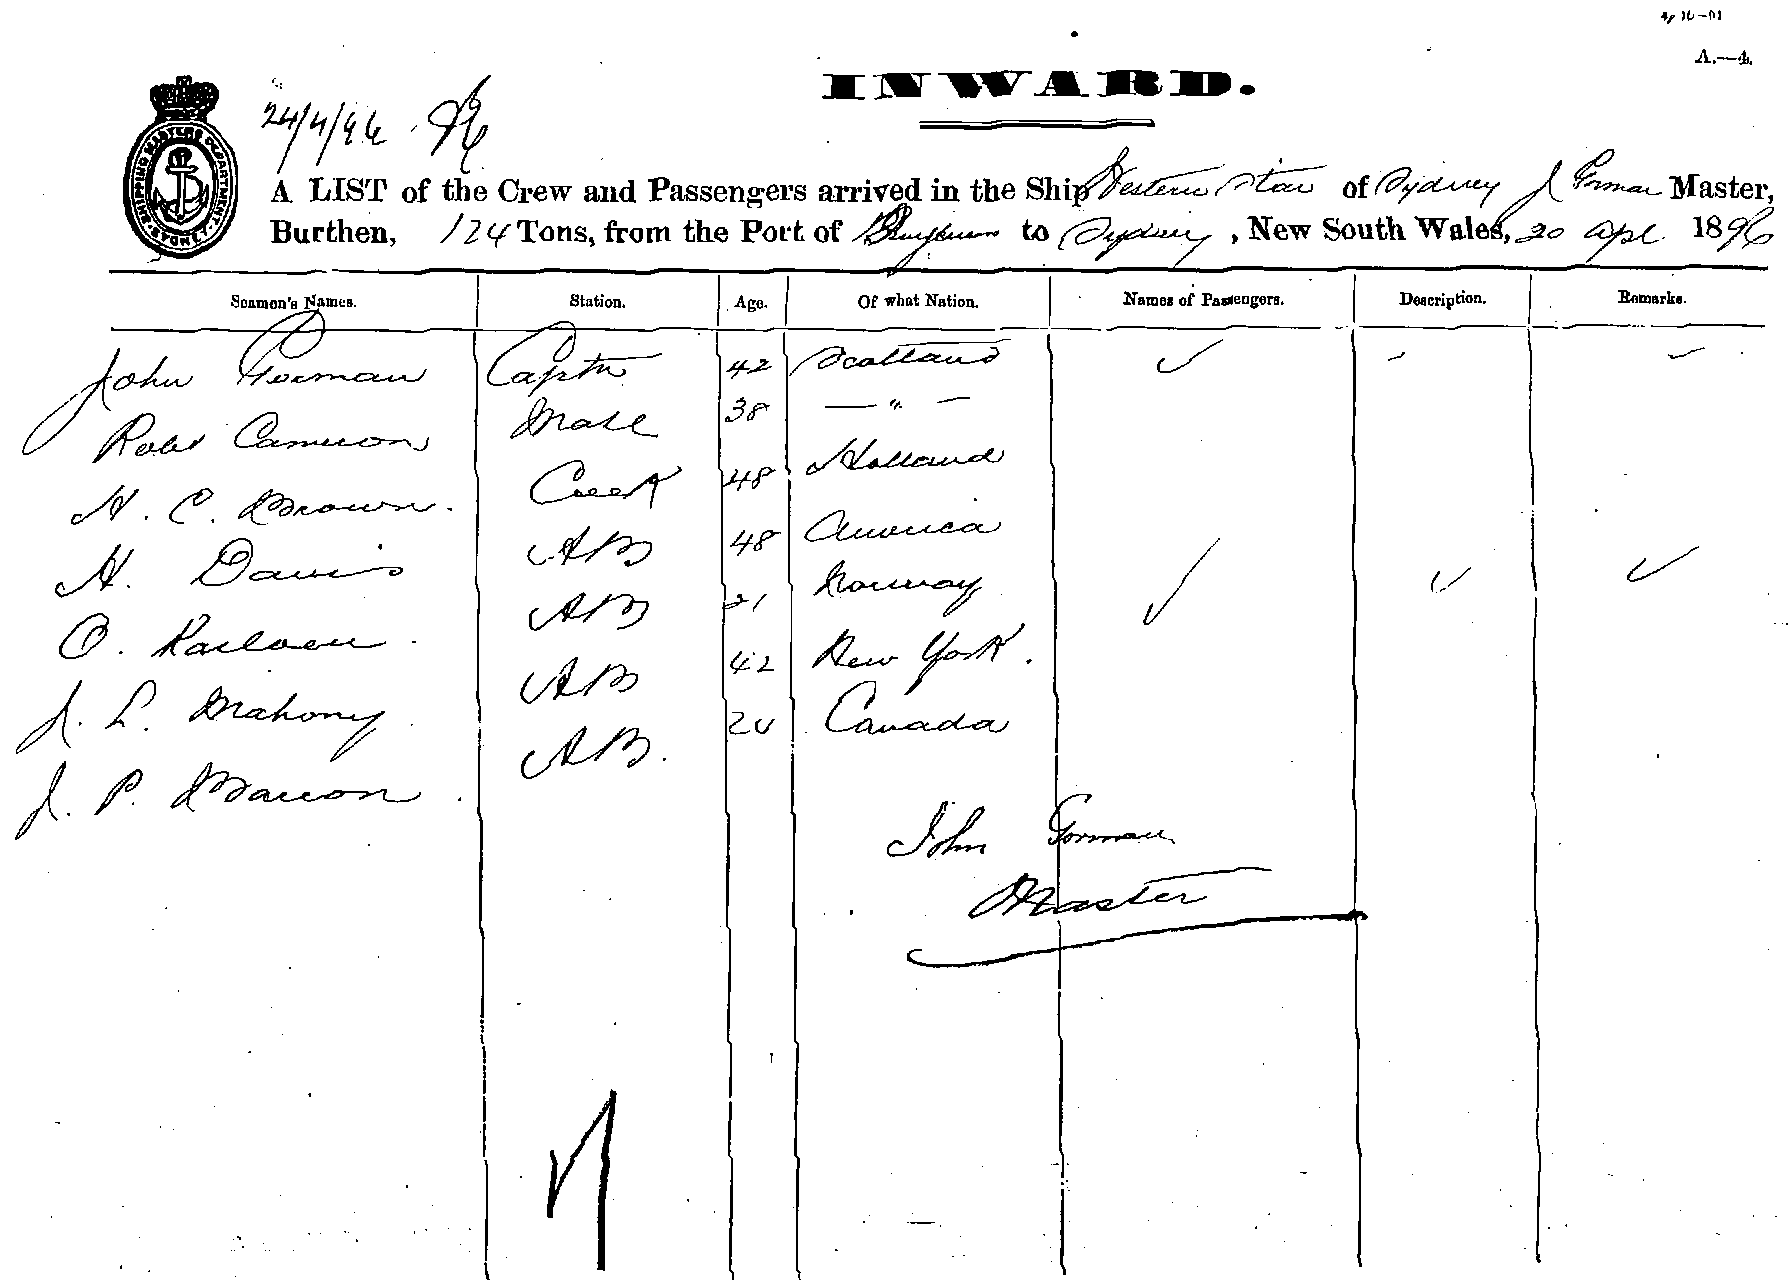 A.—4.
INWARD.
24/4/96
SHIPPING MASTERS DEPARTMENT SYDNEY
A LIST of the Crew and Passengers arrived in the Ship Western Star of Sydney J Gorman Master,
Burthen, 124 Tons, from the Port of to Sydney, New South Wales, 20 Apl 1896
Seamen's Names. Station. Age. Of what Nation. Names of Passengers. Description. Remarks.
John Gorman Captn 42 Scotland
Robt Cameron Mate 38 — " —
H. C. Brown. Cook 48 Holland
H. Davis AB 48 America
O. Karlsen AB 21 Norway
J. L. Mahony AB 42 New York.
J. P. AB. Canada
John Gorman
Master